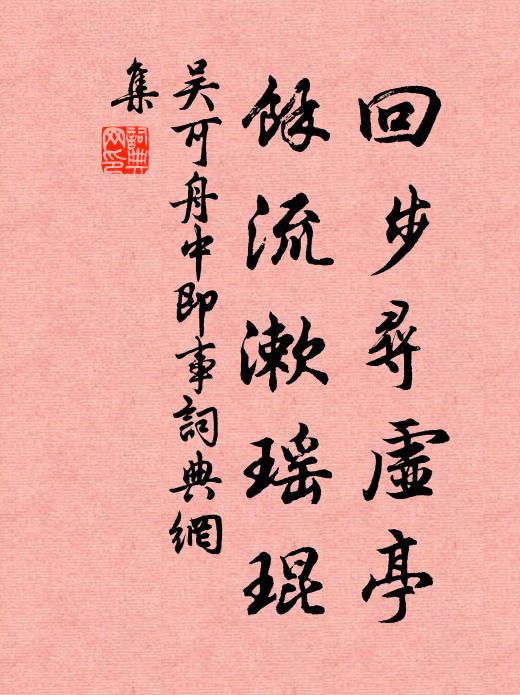 回步尋虛亭
餘流漱瑶琨
吴可舟中即事詞典網
集
詞典
网印